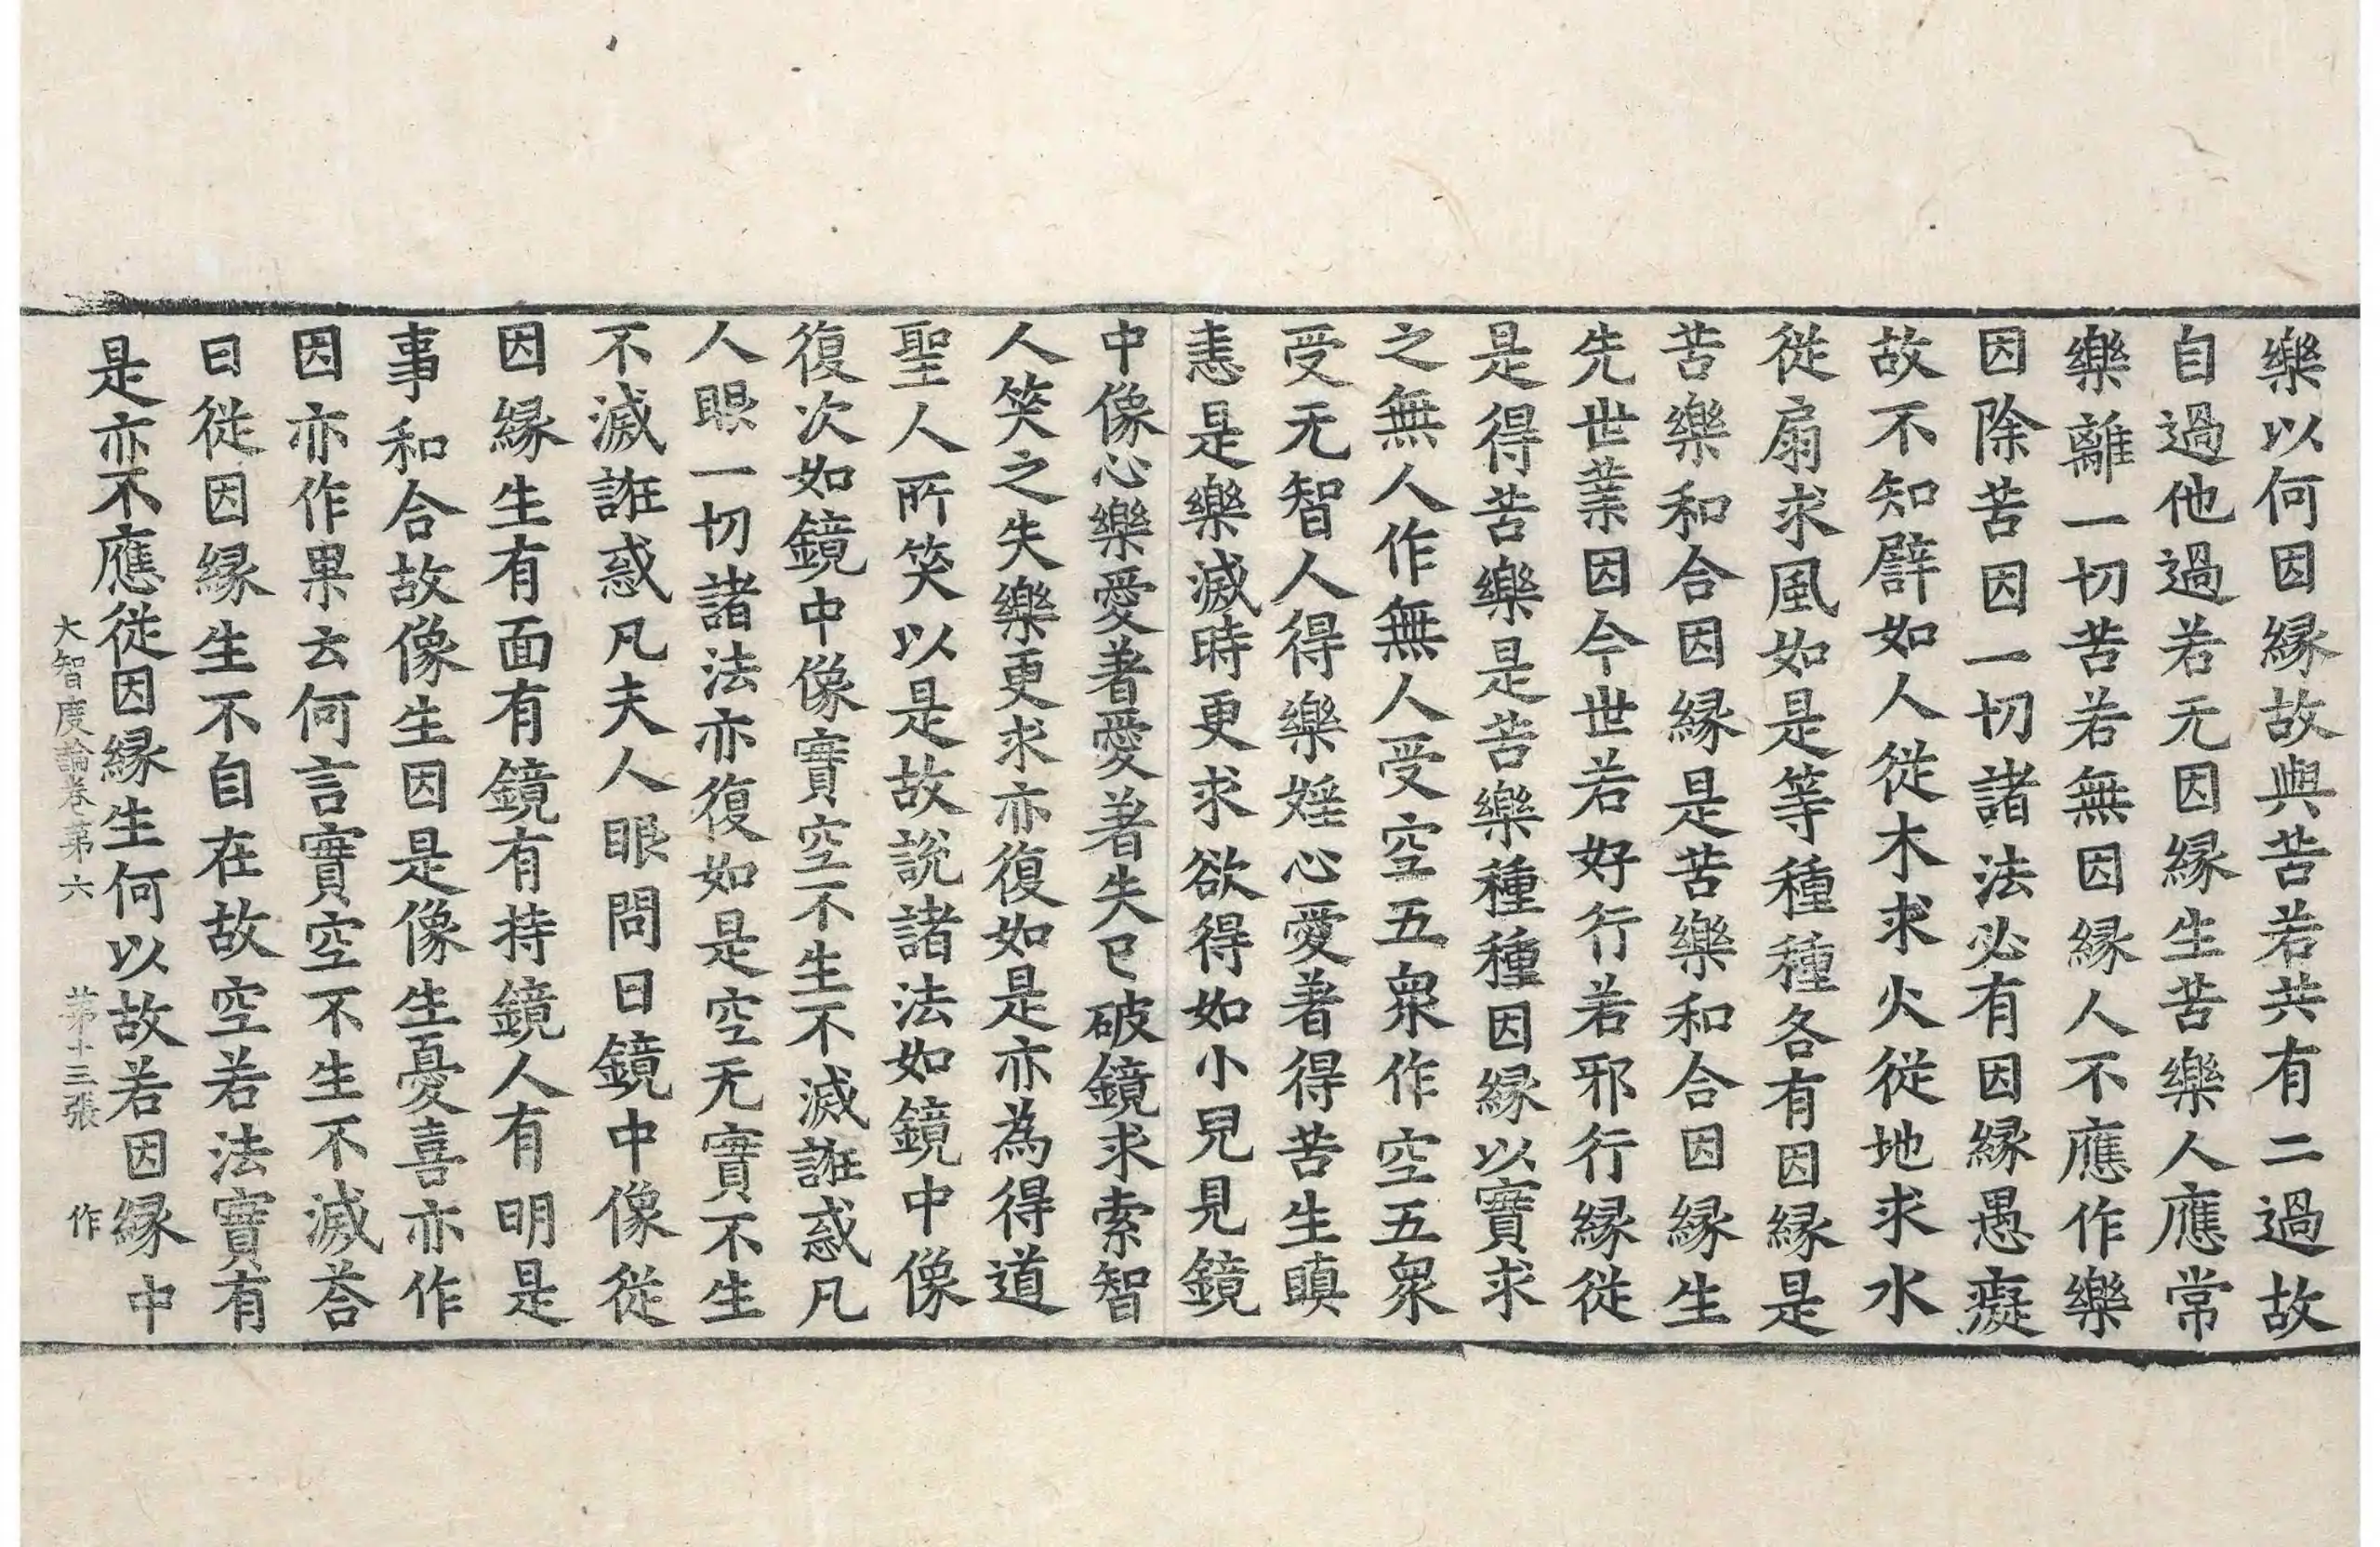 樂以何因縁故與苦若共有二過故
自過他過若无因縁生苦樂人應常
樂離一切苦若無因縁人不應作樂
因除苦因一切諸法必有因縁愚癡
故不知譬如人從木求火從地求水
從扇求風如是等種種各有因縁是
苦樂和合因縁是苦樂和合因縁生
先世業因今世若好行若邪行縁從
是得苦樂是苦樂種種因縁以實求
之無人作無人受空五衆作空五衆
受无智人得樂婬心愛著得苦生瞋
恚是樂滅時更求欲得如小兒見鏡
中像心樂愛著愛著失已破鏡求索智
人笑之失樂更求亦復如是亦為得道
聖人所笑以是故說諸法如鏡中像
復次如鏡中像實空不生不滅誑惑凡
人眼一切諸法亦復如是空无實不生
不滅誑惑凡夫人眼問曰鏡中像從
因縁生有面有鏡有持鏡人有明是
事和合故像生因是像生憂喜亦作
因亦作果云何言實空不生不滅荅
曰從因縁生不自在故空若法實有
是亦不應從因縁生何以故若因縁中
大智度論卷苐六 苐十三張 作